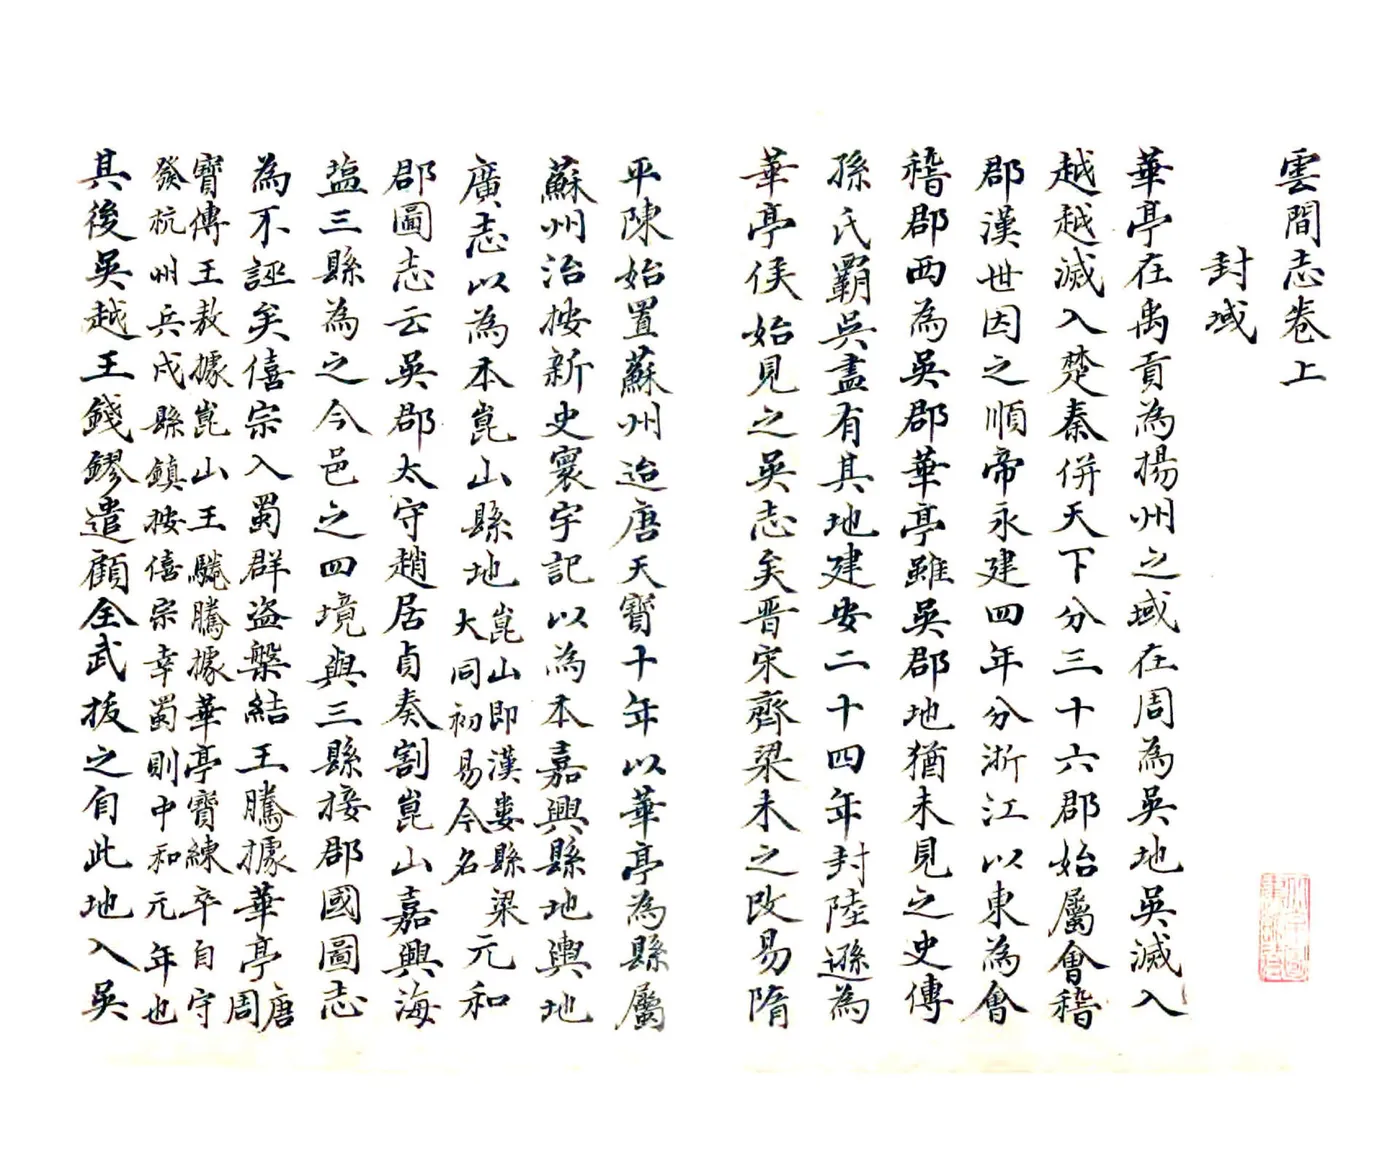 雲間志卷上
封域
華亭在禹貢為揚州之域在周為吳地吳滅入
越越滅入楚秦併天下分三十六郡始屬會稽
郡漢世因之順帝永建四年分浙江以東為會
稽郡西為吳郡華亭雖吳郡地猶未見之史傳
孫氏霸吳盡有其地建安二十四年封陸遜為
華亭侯始見之吳志矣晋宋齊梁未之改易隋
平陳始置蘇州迨唐天寶十年以華亭為縣屬
蘇州治按新史寰宇記以為本嘉興縣地輿地
廣志以為本崑山縣地崑山即漢婁縣梁大同初易今名元和
郡圖志云吳郡太守趙居貞奏割崑山嘉興海
塩三縣為之今邑之四境與三縣接郡國圖志
為不誣矣僖宗入蜀群盜槃結王騰據華亭唐周
寶傳王敖據崑山王騰據華亭寶練卒自守
發杭州兵戍縣鎮按僖宗幸蜀則中和元年也
其後吳越王錢鏐遣顧全武拔之自此地入吳